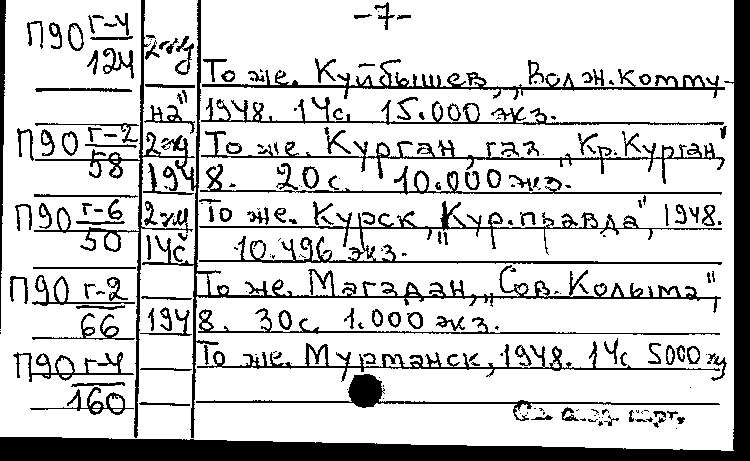 -7-
П90 г-4/124 2экз То же. Куйбышев, „Волж. комму-
на" 1948. 14с. 15.000 экз.
П90 г-2/58 2экз То же. Курган, газ „Кр. Курган,"
1948. 20с. 10.000 экз.
П90 г-6/50 2экз То же. Курск, „Кур. правда", 1948.
14с. 10.496 экз.
П90 г-2/66 То же. Магадан, „Сов. Колыма",
1948. 30с. 1.000 экз.
П90 г-4/160 То же. Мурманск, 1948. 14с 5000 экз
См. след. карт.